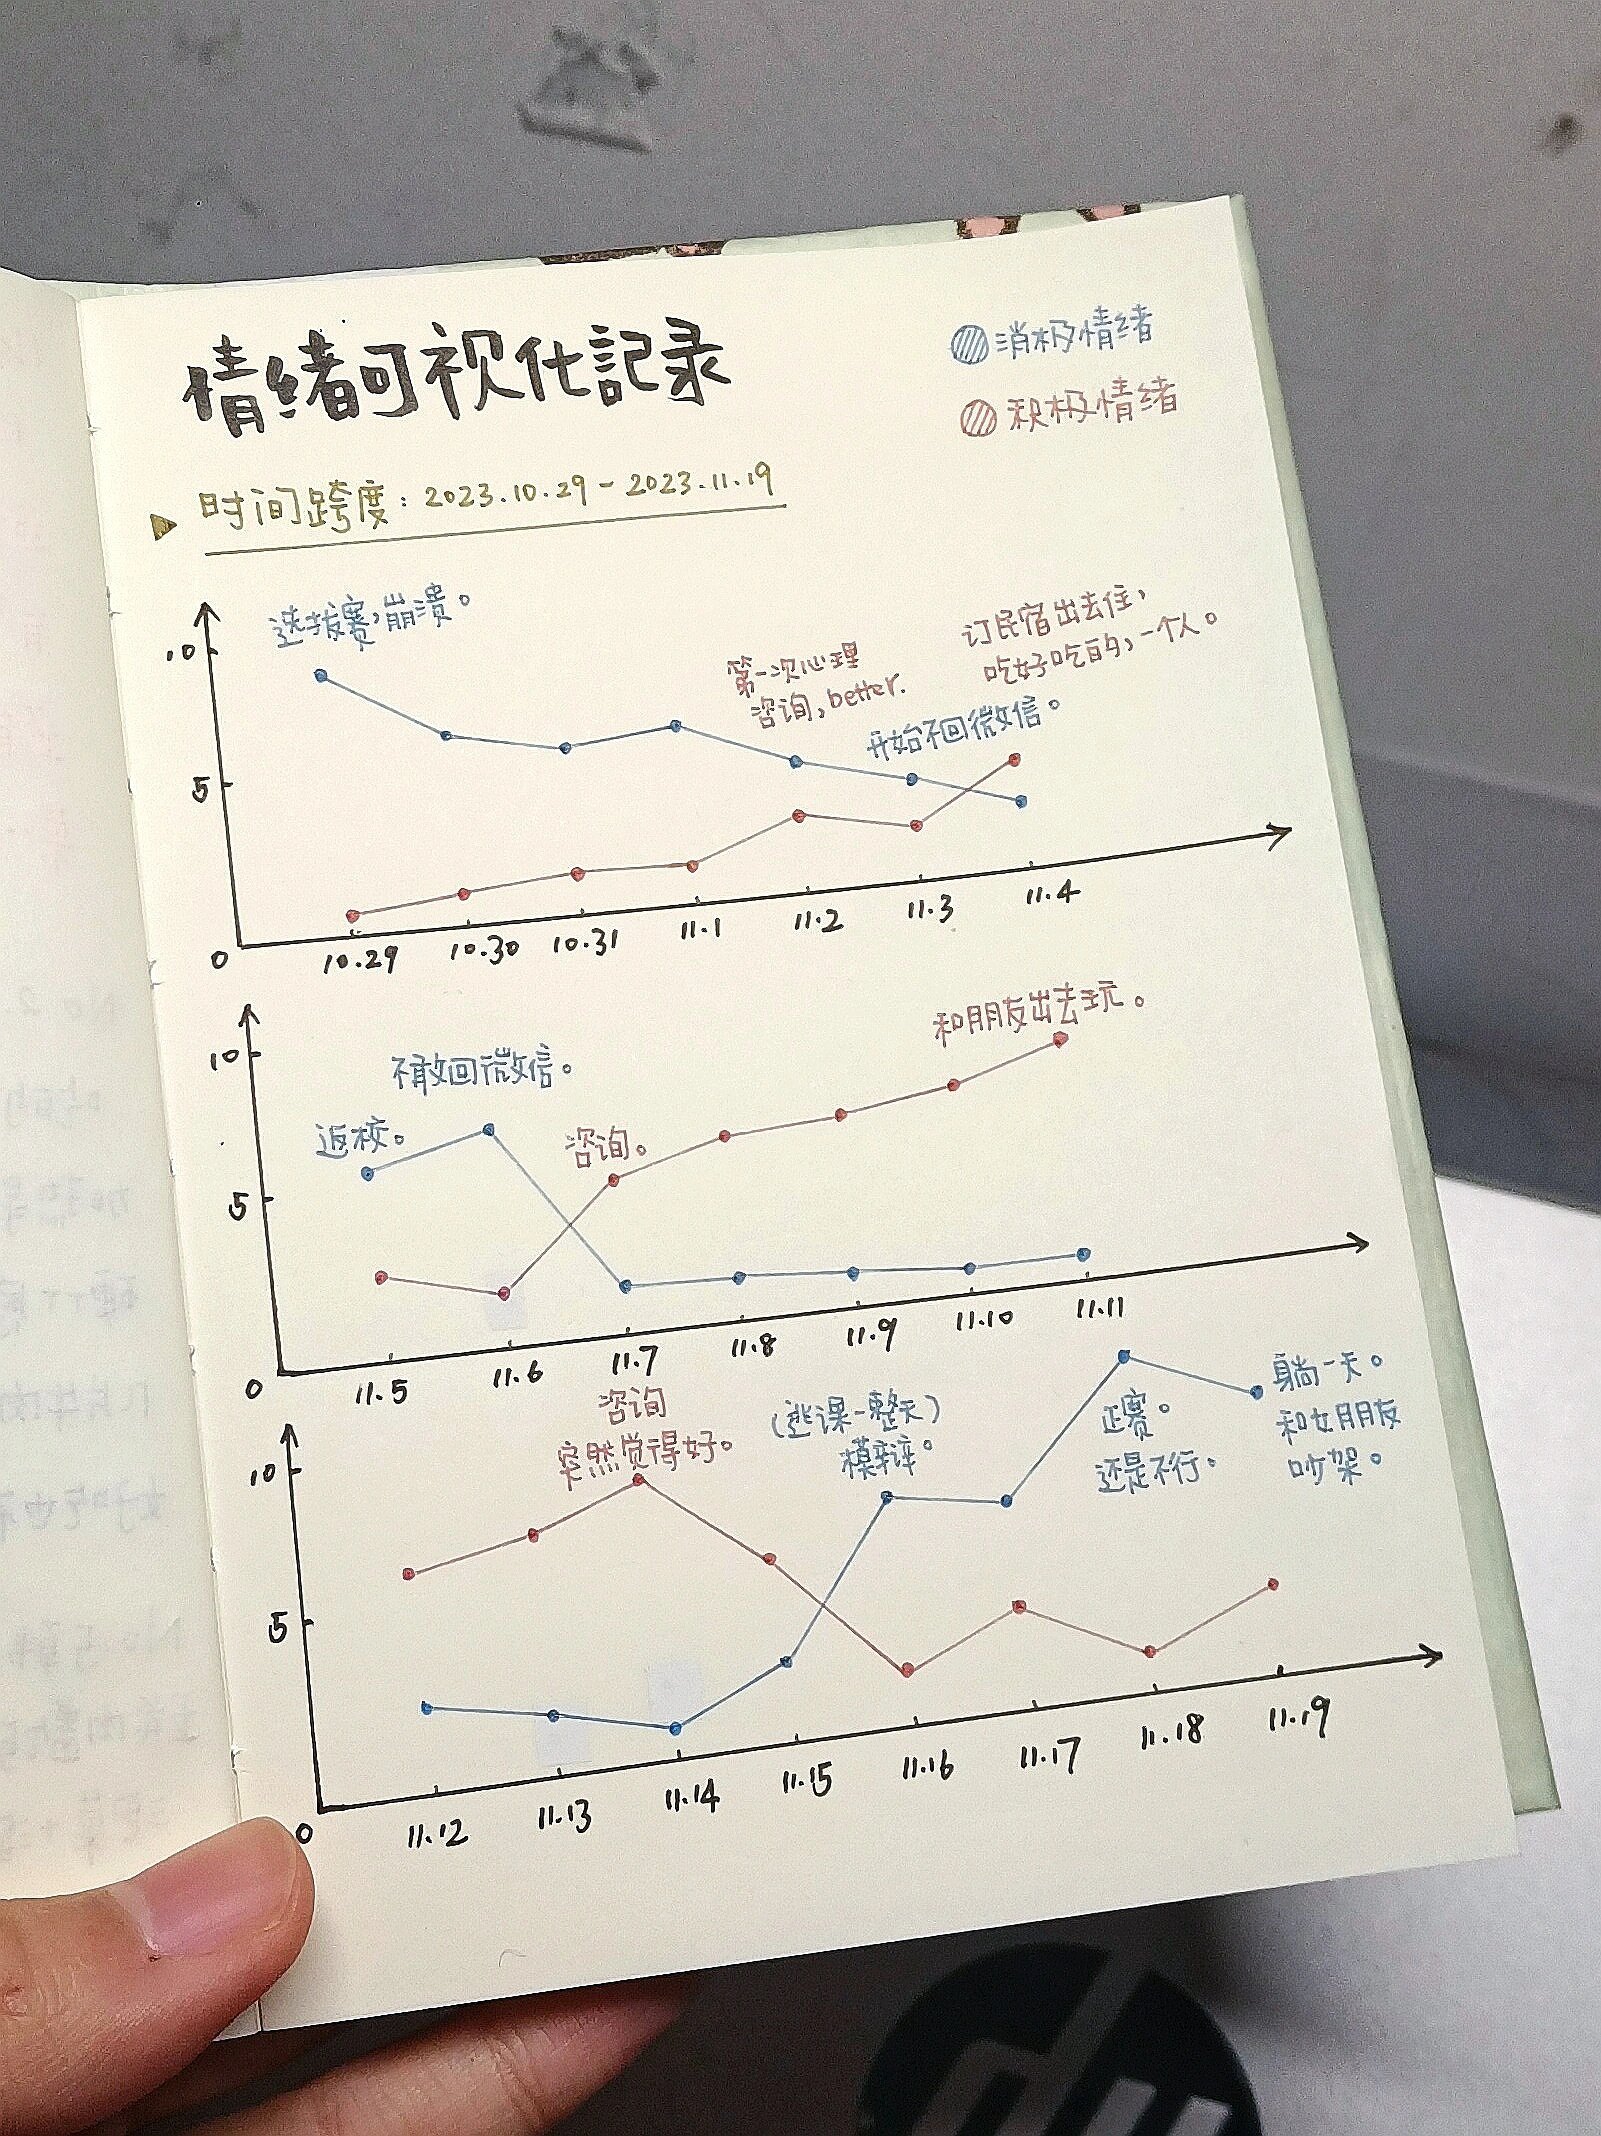 情绪可视化記录
消极情绪
积极情绪
时间跨度：2023.10.29-2023.11.19
选拔赛，崩溃。
第一次心理
咨询，better.
订民宿出去住，
吃好吃的，一个人。
开始不回微信。
10
5
0
10.29 10.30 10.31 11.1 11.2 11.3 11.4
和朋友出去玩。
不敢回微信。
返校。
咨询。
10
5
0
11.5 11.6 11.7 11.8 11.9 11.10 11.11
咨询
突然觉得好。
(逃课一整天)
模辩。
正赛。
还是不行。
躺一天。
和女朋友
吵架。
10
5
0
11.12 11.13 11.14 11.15 11.16 11.17 11.18 11.19
hp